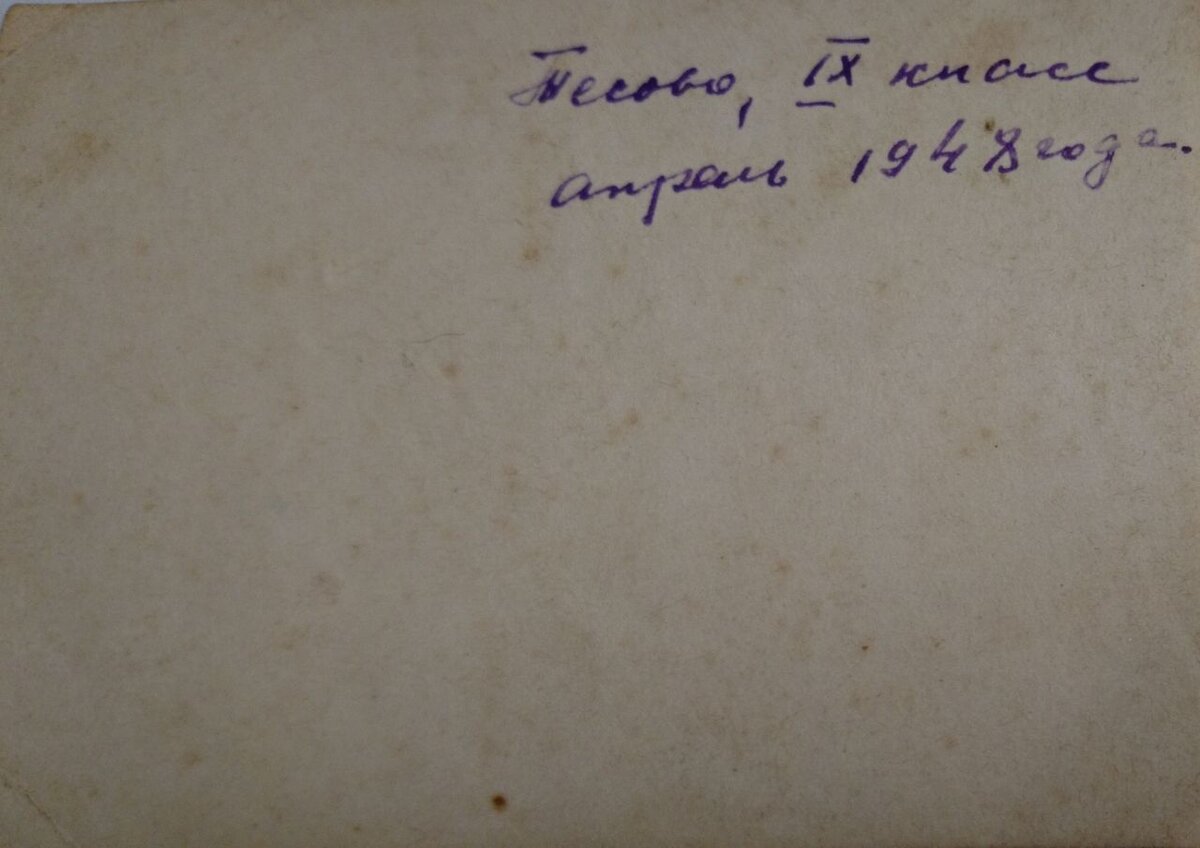 Тесово, IX класс
апрель 1948 года.